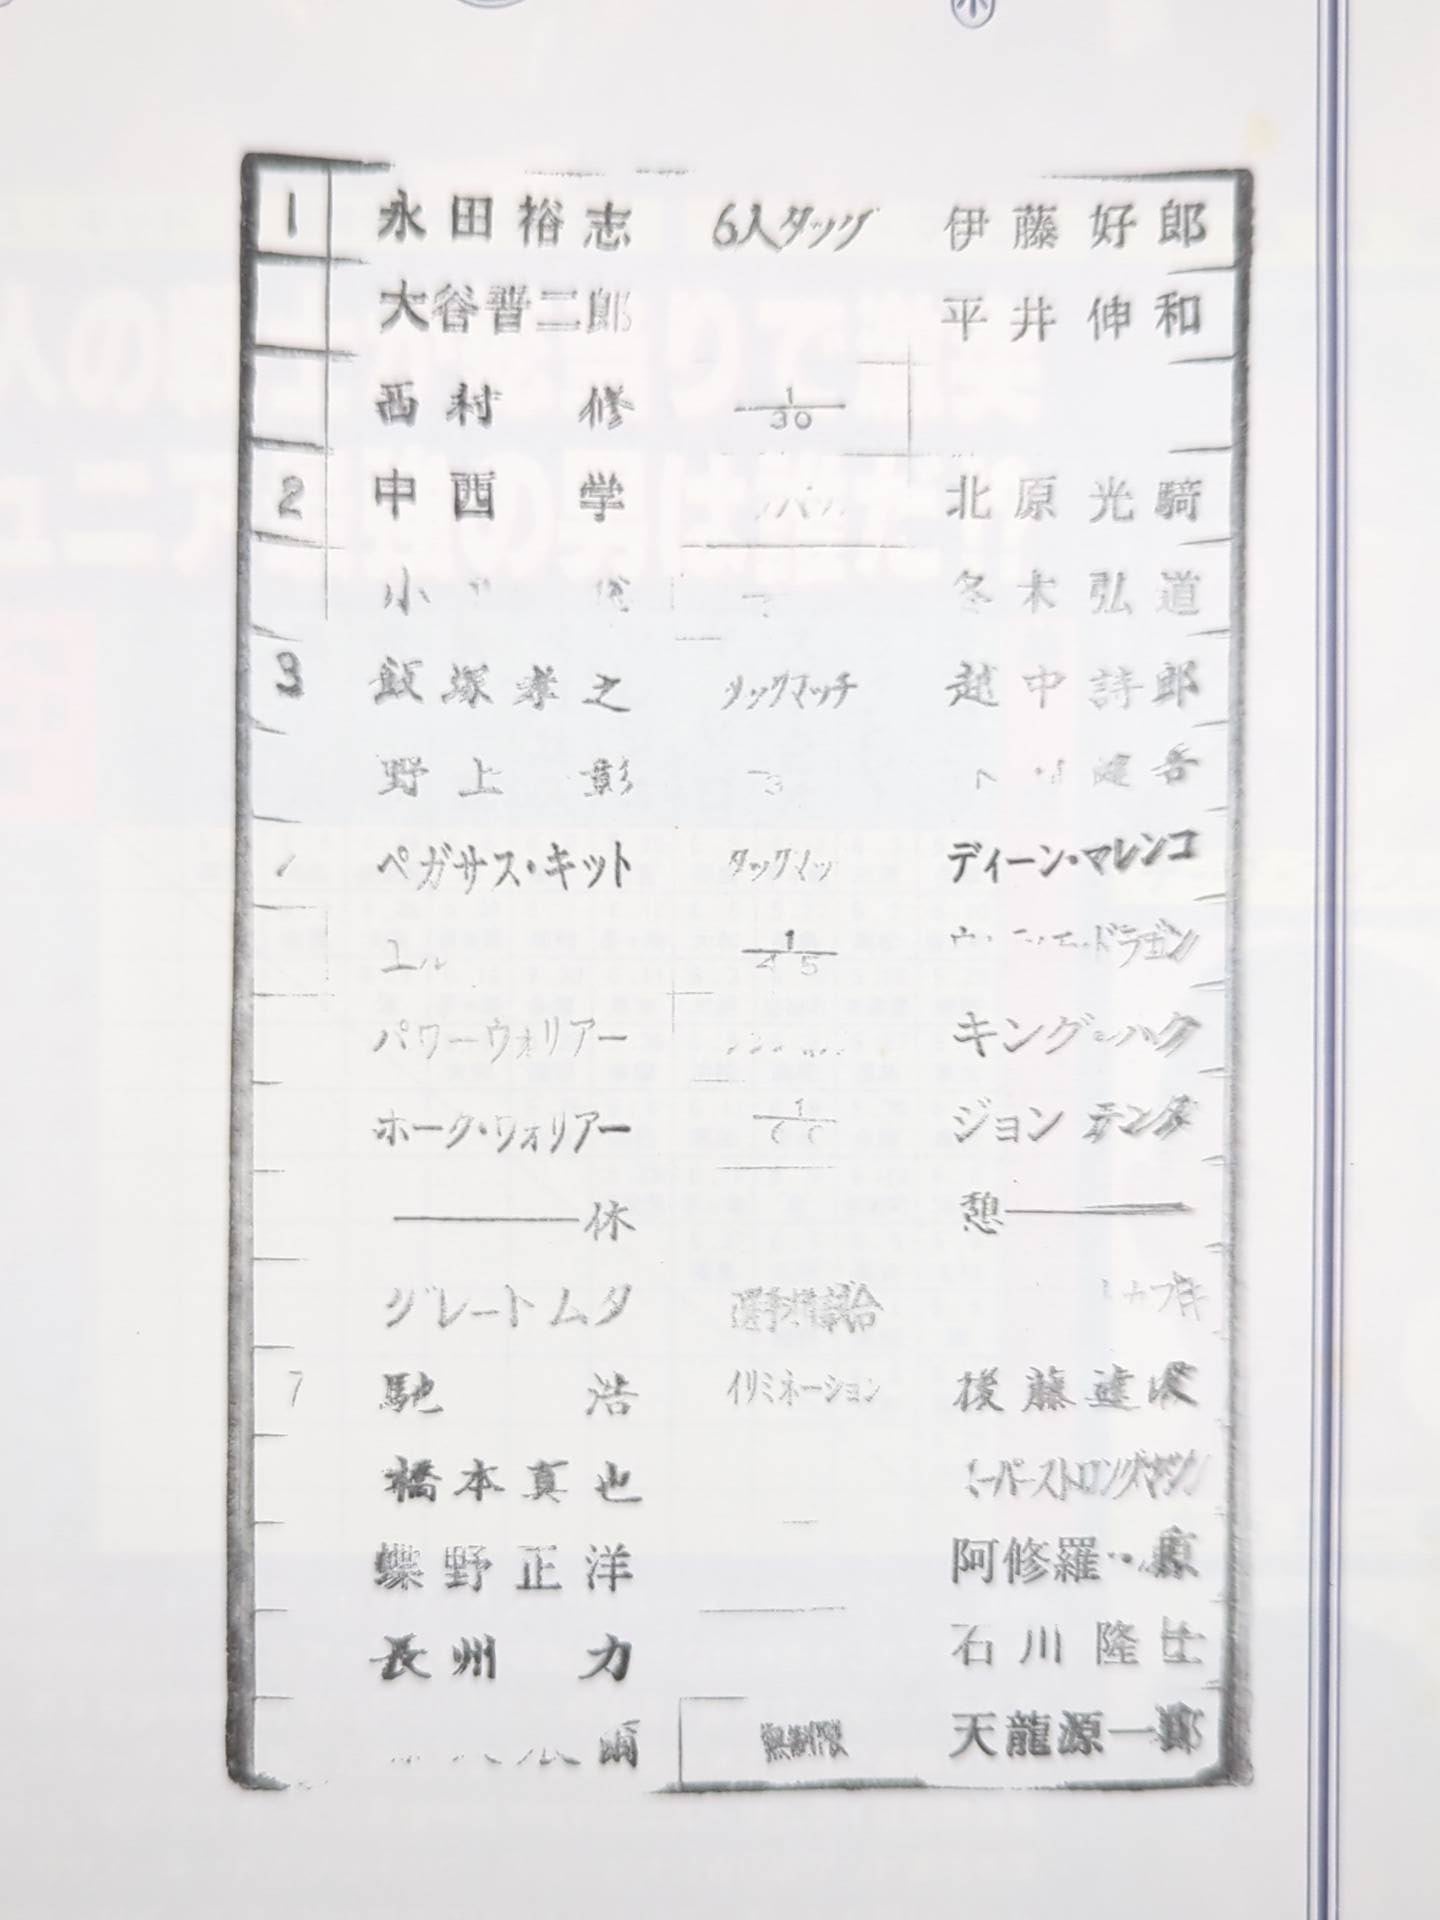 1 永田裕志 6人タッグ 伊藤好郎
大谷晋二郎 平井伸和
西村修 1/30
2 中西学 北原光騎
小 冬木弘道
3 飯塚孝之 タッグマッチ 越中詩郎
野上彰 健吾
ペガサス・キット タッグマッ ディーン・マレンコ
1/45 ドラゴン
パワーウォリアー キング・ハク
ホーク・ウォリアー 1 ジョン テンタ
休 憩
グレートムタ カブキ
7 馳浩 イリミネーション 後藤達
橋本真也 ーパーストロングマシン
蝶野正洋 阿修羅・原
長州力 石川隆士
爾 無制限 天龍源一郎